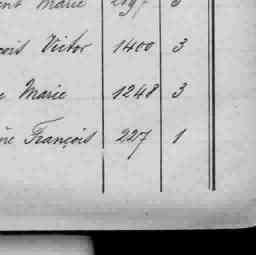 Marie 3
Victor 1400 3
Marie 1248 3
François 227 1